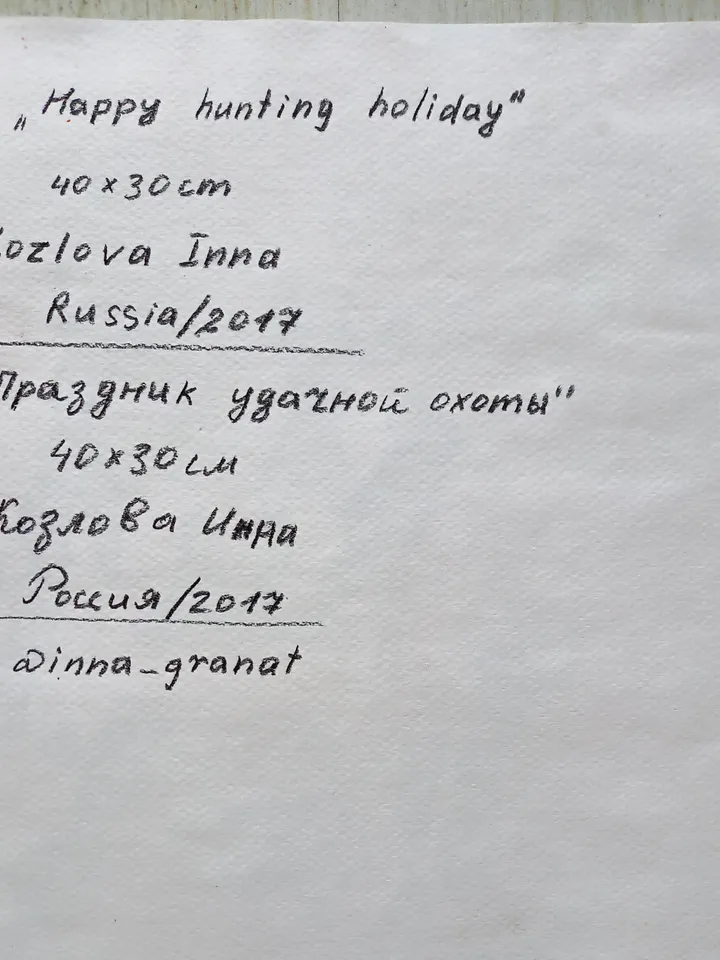 „Happy hunting holiday"
40×30cm
Kozlova Inna
Russia/2017
Праздник удачной охоты"
40×30см
Козлова Инна
Россия/2017
@inna_granat